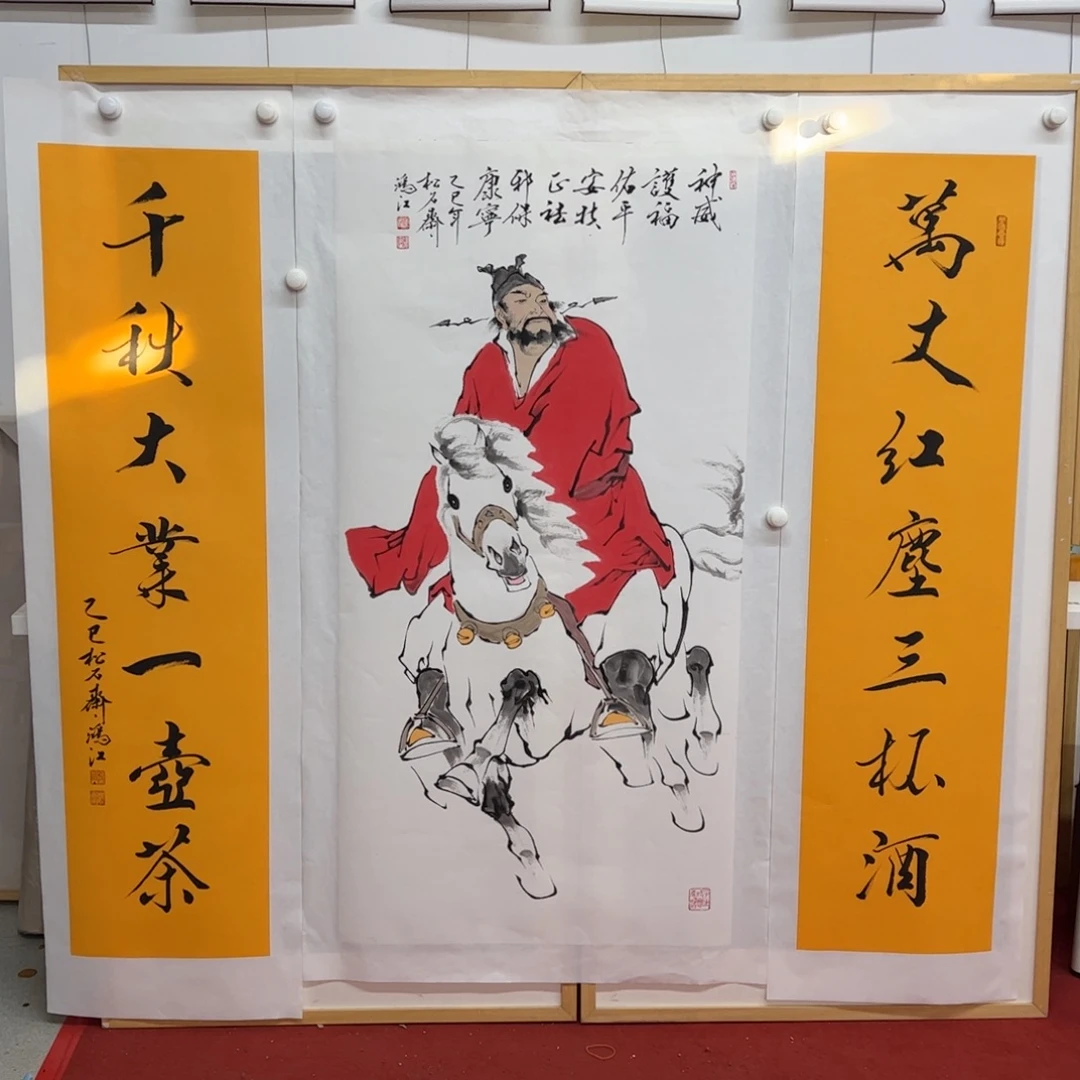 萬丈红塵三杯酒
神威
護福
佑平
安扶
正祛
邪保
康寧
乙巳年
松石齋
鴻江
千秋大業一壺茶
乙巳松石齋鴻江